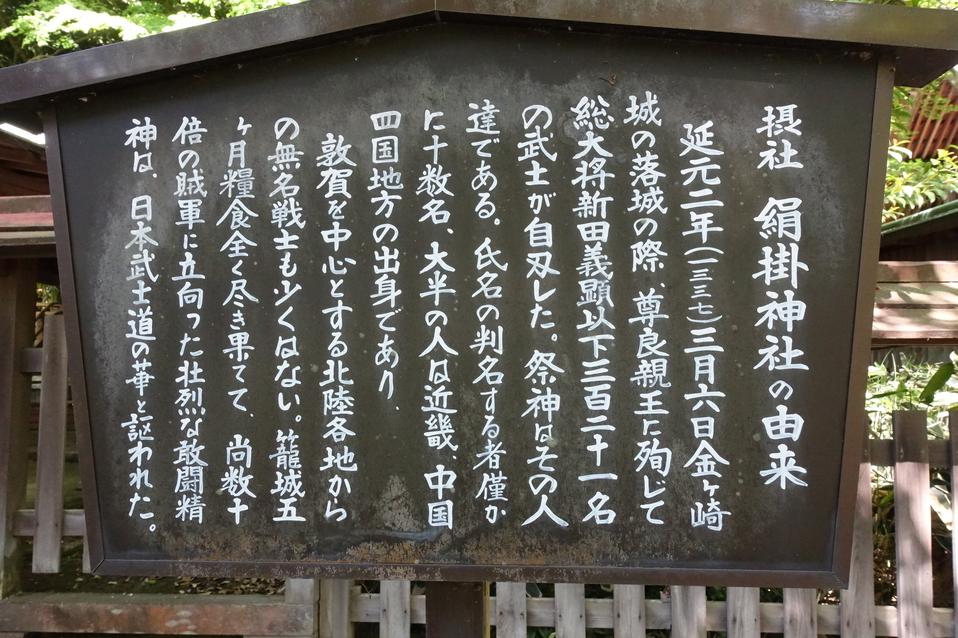 摂社 絹掛神社の由来
延元二年(一三三七)三月六日金ヶ崎
城の落城の際、尊良親王に殉じて
総大将新田義顕以下三百二十一名
の武士が自刃した。祭神はその人
達である。氏名の判名する者僅か
に十数名、大半の人は近畿、中国
四国地方の出身であり、
敦賀を中心とする北陸各地から
の無名戦士も少くはない。籠城五
ヶ月糧食全く尽き果てて、尚数十
倍の賊軍に立向った壮烈な敢闘精
神は、日本武士道の華と謳われた。